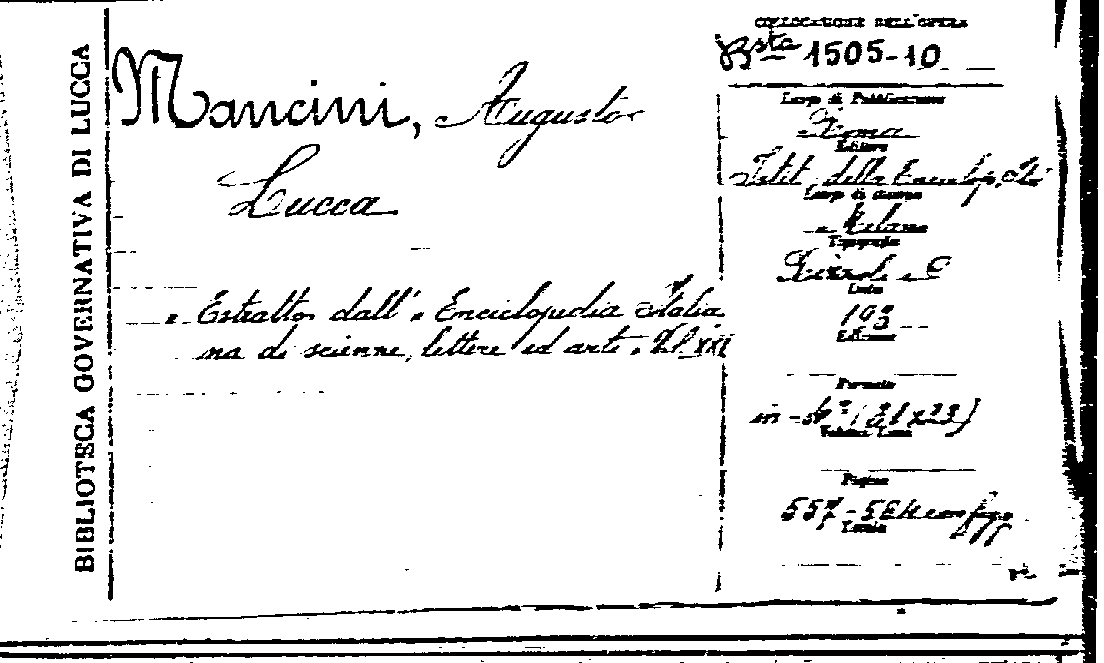 BIBLIOTECA GOVERNATIVA DI LUCCA
Mancini, Augusto
Lucca
Estratto dall' "Enciclopedia Italia
na di scienze, lettere ed arti"
COLLOCAZIONE DELL'OPERA
Bsta 1505-10
Luogo di Pubblicazione
Roma
Editore
Istit. della Enciclop. It.
Luogo di stampa
Milano
Tipografia
Rizzoli e C
Data
193
Edizione
Formato
in-4° (31x23)
Pagine
557-564 con figg